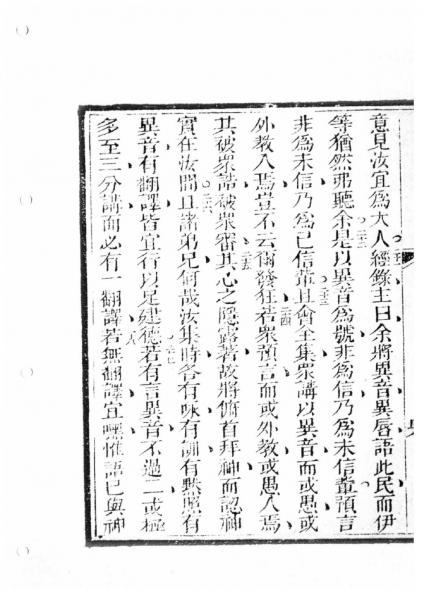 意見汝宜為大人經錄主曰余將異音異唇語此民而伊
等猶然弗聽余是以異音為號非為信乃為未信輩預言
非為未信乃為已信輩且會全集眾講以異音而或愚或
外教入焉豈不云爾發狂若眾預言而或外教或愚人焉
其被眾譴被眾審其心之隱露著故將俯首拜神而認神
實在汝間且諸弟兄何哉汝集時各有咏有訓有默照有
異音有翻譯皆宜行以足建德若有言異音不過二或極
多至三分講而必有一翻譯若無翻譯宜嘿惟語已與神